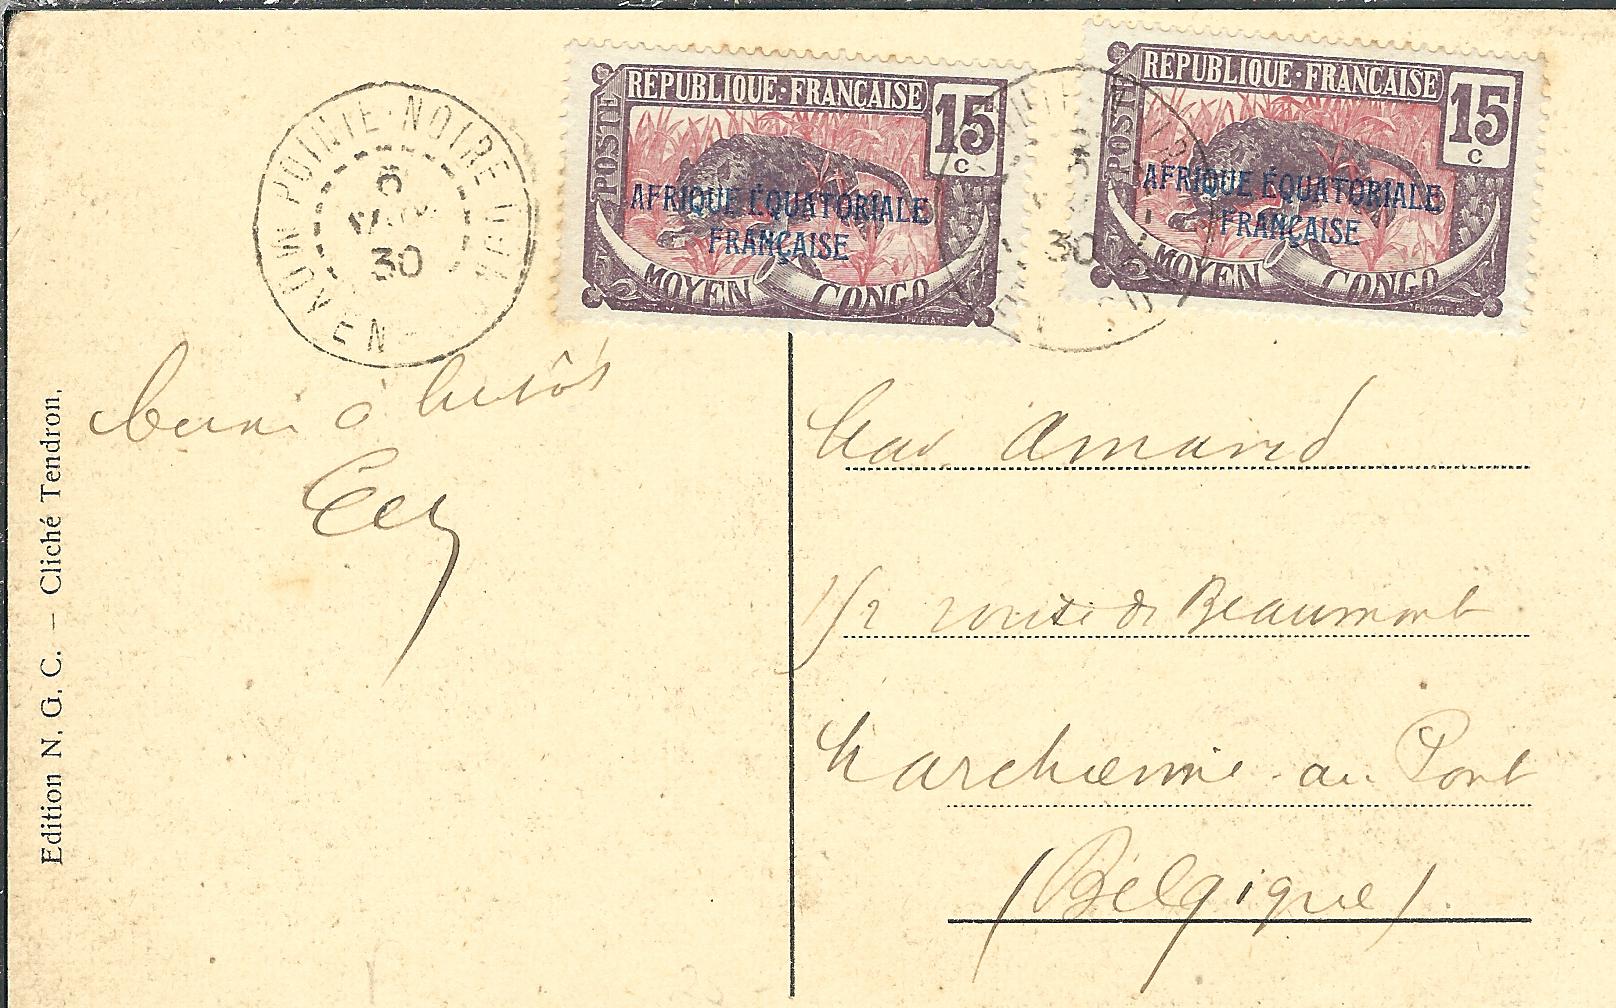 POINTE-NOIRE
MOYEN
6
30
RÉPUBLIQUE·FRANÇAISE
15
C
POSTE
AFRIQUE ÉQUATORIALE
FRANÇAISE
MOYEN CONGO
RÉPUBLIQUE·FRANÇAISE
15
C
POSTE
AFRIQUE ÉQUATORIALE
FRANÇAISE
MOYEN CONGO
30
à bientôt
Edition N. G. C. – Cliché Tendron.
Amand
route de Beaumont
Marchienne au Pont
(Belgique)